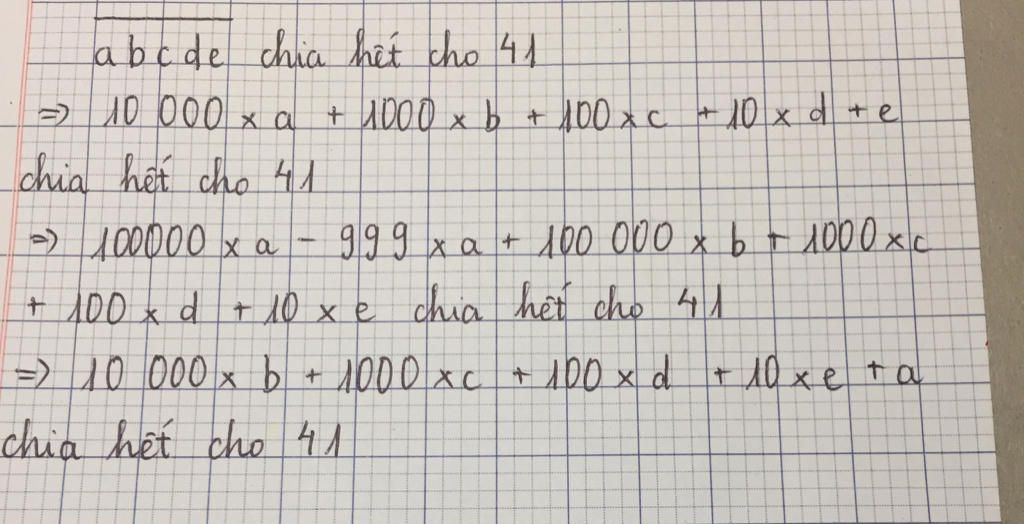 abcde chia hết cho 41
=> 10 000 x a + 1000 x b + 100 x c + 10 x d + e
chia hết cho 41
=> 100000 x a - 999 x a + 100 000 x b + 1000 x c
+ 100 x d + 10 x e chia hết cho 41
=> 10 000 x b + 1000 x c + 100 x d + 10 x e + a
chia hết cho 41